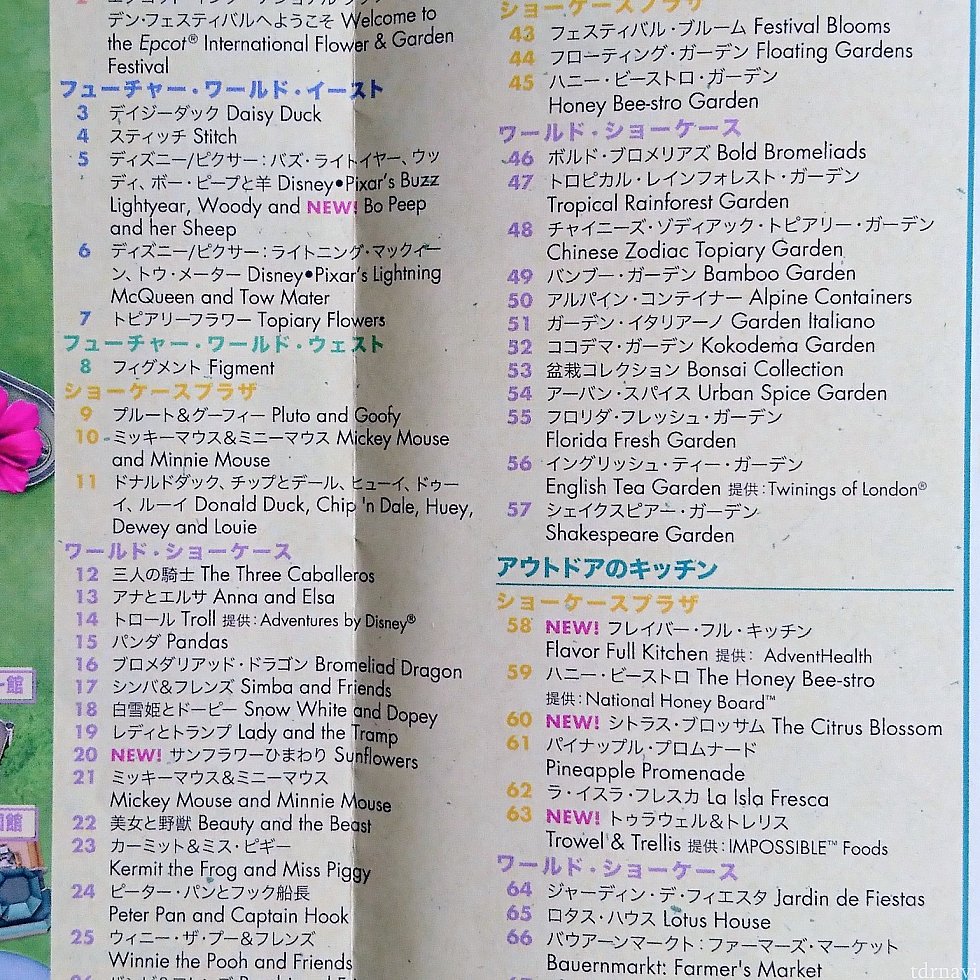 デン・フェスティバルへようこそ Welcome to
the Epcot® International Flower & Garden
Festival
フューチャー・ワールド・イースト
3 デイジーダック Daisy Duck
4 スティッチ Stitch
5 ディズニー/ピクサー：バズ・ライトイヤー、ウッ
ディ、ボー・ピープと羊 Disney•Pixar's Buzz
Lightyear, Woody and NEW! Bo Peep
and her Sheep
6 ディズニー/ピクサー：ライトニング・マックィー
ン、トウ・メーター Disney•Pixar's Lightning
McQueen and Tow Mater
7 トピアリーフラワー Topiary Flowers
フューチャー・ワールド・ウェスト
8 フィグメント Figment
ショーケースプラザ
9 プルート＆グーフィー Pluto and Goofy
10 ミッキーマウス＆ミニーマウス Mickey Mouse
and Minnie Mouse
11 ドナルドダック、チップとデール、ヒューイ、ドゥー
イ、ルーイ Donald Duck, Chip 'n Dale, Huey,
Dewey and Louie
ワールド・ショーケース
12 三人の騎士 The Three Caballeros
13 アナとエルサ Anna and Elsa
14 トロール Troll 提供：Adventures by Disney®
15 パンダ Pandas
16 ブロメダリアッド・ドラゴン Bromeliad Dragon
17 シンバ＆フレンズ Simba and Friends
18 白雪姫とドーピー Snow White and Dopey
19 レディとトランプ Lady and the Tramp
20 NEW! サンフラワーひまわり Sunflowers
21 ミッキーマウス＆ミニーマウス
Mickey Mouse and Minnie Mouse
22 美女と野獣 Beauty and the Beast
23 カーミット＆ミス・ピギー
Kermit the Frog and Miss Piggy
24 ピーター・パンとフック船長
Peter Pan and Captain Hook
25 ウィニー・ザ・プー＆フレンズ
Winnie the Pooh and Friends
ショーケースプラザ
43 フェスティバル・ブルーム Festival Blooms
44 フローティング・ガーデン Floating Gardens
45 ハニー・ビーストロ・ガーデン
Honey Bee-stro Garden
ワールド・ショーケース
46 ボルド・ブロメリアズ Bold Bromeliads
47 トロピカル・レインフォレスト・ガーデン
Tropical Rainforest Garden
48 チャイニーズ・ゾディアック・トピアリー・ガーデン
Chinese Zodiac Topiary Garden
49 バンブー・ガーデン Bamboo Garden
50 アルパイン・コンテイナー Alpine Containers
51 ガーデン・イタリアーノ Garden Italiano
52 ココデマ・ガーデン Kokodema Garden
53 盆栽コレクション Bonsai Collection
54 アーバン・スパイス Urban Spice Garden
55 フロリダ・フレッシュ・ガーデン
Florida Fresh Garden
56 イングリッシュ・ティー・ガーデン
English Tea Garden 提供：Twinings of London®
57 シェイクスピアー・ガーデン
Shakespeare Garden
アウトドアのキッチン
ショーケースプラザ
58 NEW! フレイバー・フル・キッチン
Flavor Full Kitchen 提供： AdventHealth
59 ハニー・ビーストロ The Honey Bee-stro
提供：National Honey Board™
60 NEW! シトラス・ブロッサム The Citrus Blossom
61 パイナップル・プロムナード
Pineapple Promenade
62 ラ・イスラ・フレスカ La Isla Fresca
63 NEW! トゥラウェル＆トレリス
Trowel & Trellis 提供：IMPOSSIBLE™ Foods
ワールド・ショーケース
64 ジャーディン・デ・フィエスタ Jardin de Fiestas
65 ロタス・ハウス Lotus House
66 バウアーンマークト：ファーマーズ・マーケット
Bauernmarkt: Farmer's Market
館
館
tdrnavi